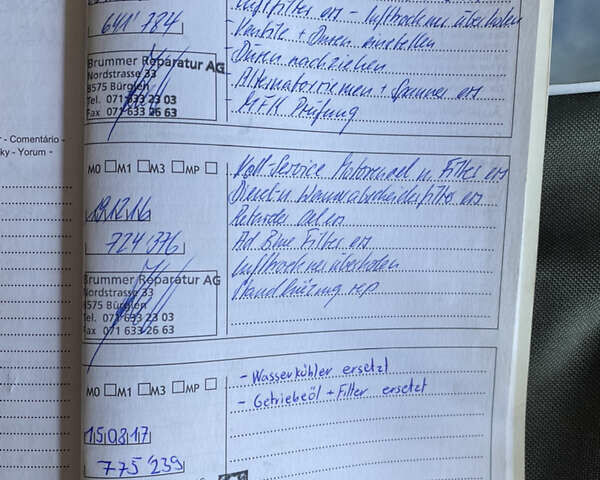 641'784
Luftfilter ers - Lufttrockner überholen
Ventile + Düsen einstellen
Düsen nachziehen
Alternatorriemen + Spanner ers
MFK Prüfung
Brummer Reparatur AG
Nordstrasse 33
8575 Bürglen
Tel. 071 633 23 03
Fax 071 633 26 63
- Comentário -
ky - Yorum -
M0 M1 M3 MP
19.12.16
724'376
Voll-Service Motorenoel u. Filter ers
Diesel u. Wasserabscheiderfilter ers
Retarder Oel ers
Ad Blue Filter ers
Lufttrockner überholen
Standheizung rep
Brummer Reparatur AG
Nordstrasse 33
8575 Bürglen
Tel. 071 633 23 03
Fax 071 633 26 63
M0 M1 M3 MP
15 08 17
775'239
- Wasserkühler ersetzt
- Getriebeöl + Filter ersetzt